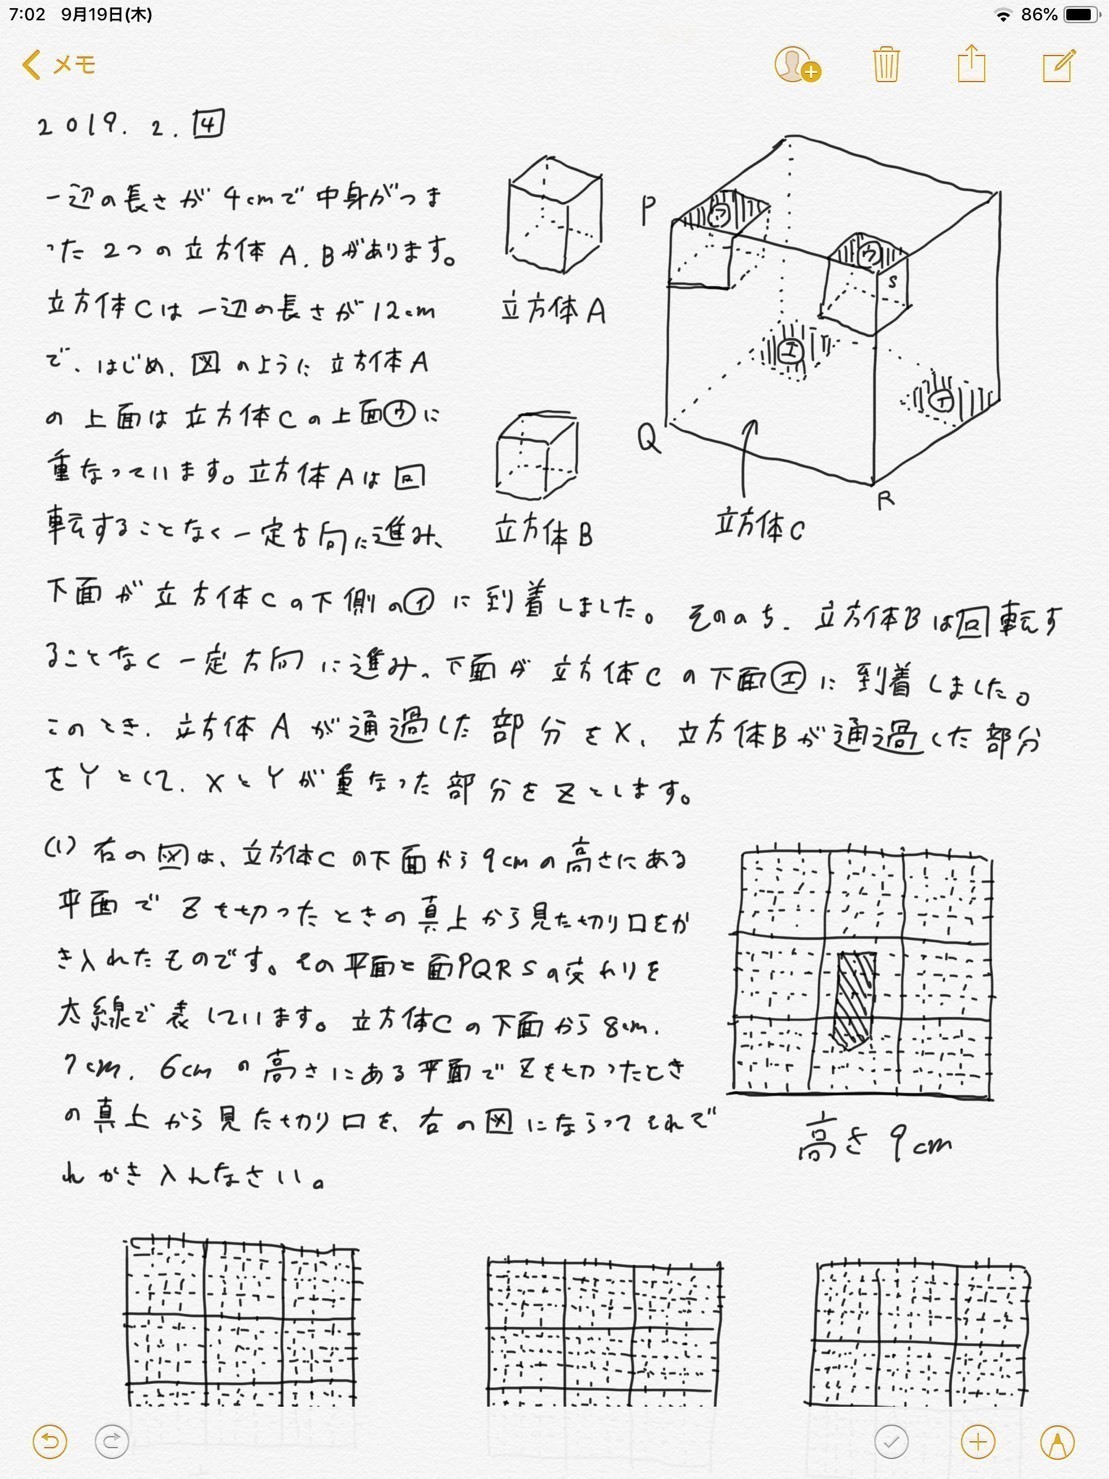 7:02 9月19日(木)
86%
メモ
2019. 2. 4
一辺の長さが4cmで中身がつま
った2つの立方体A、Bがあります。
立方体Cは一辺の長さが12cm
で、はじめ、図のように立方体A
の上面は立方体Cの上面㋒に
重なっています。立方体Aは回
転することなく一定方向に進み、
下面が立方体Cの下側の㋑に到着しました。そののち、立方体Bは回転す
ることなく一定方向に進み、下面が立方体Cの下面㋓に到着しました。
このとき、立方体Aが通過した部分をX、立方体Bが通過した部分
をYとして、XとYが重なった部分をZとします。
立方体A
立方体B
P
㋐
㋒
S
㋓
㋑
Q
R
立方体C
(1) 右の図は、立方体Cの下面から9cmの高さにある
平面でZを切ったときの真上から見た切り口をか
き入れたものです。その平面と面PQRSの交わりを
太線で表しています。立方体Cの下面から8cm、
7cm、6cmの高さにある平面でZを切ったとき
の真上から見た切り口を、右の図にならってそれぞ
れかき入れなさい。
高さ9cm